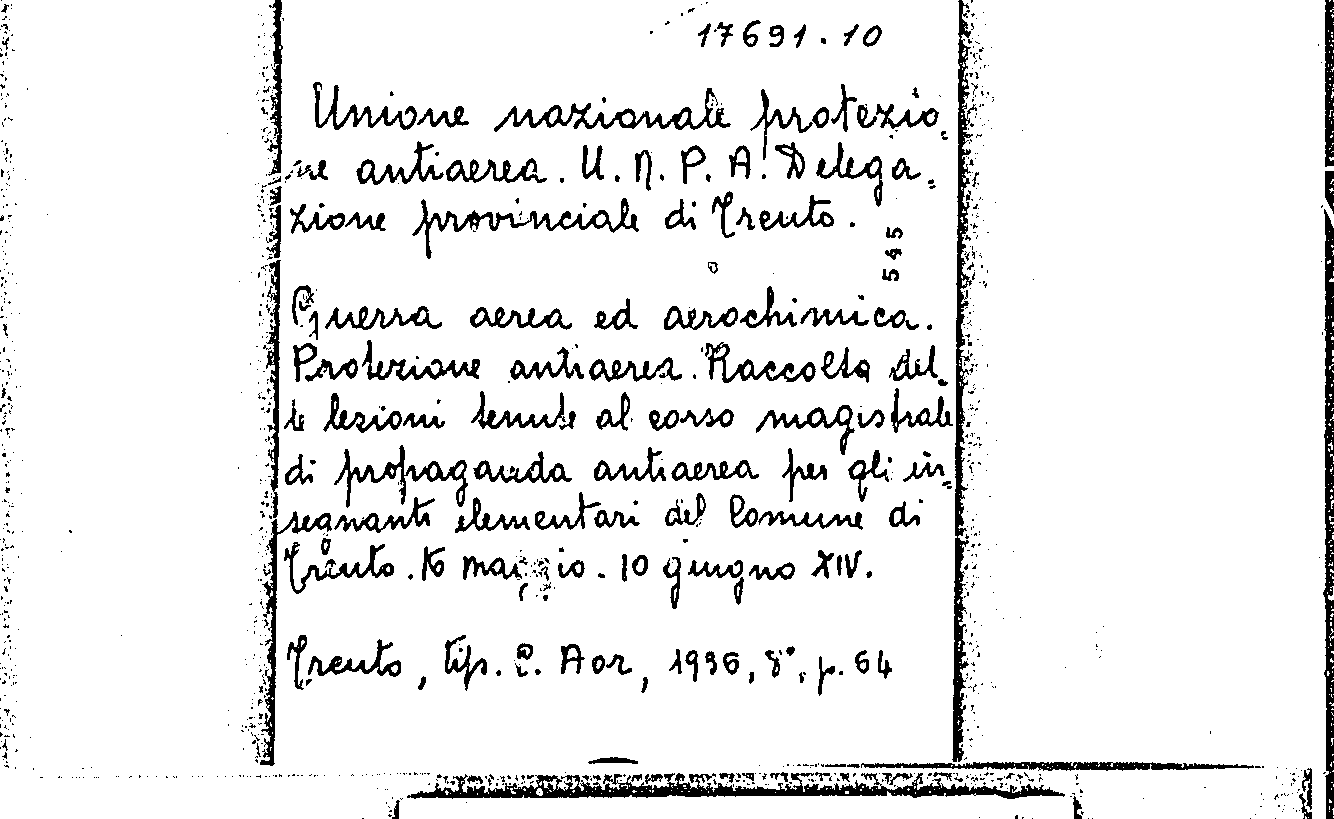 17691.10
Unione nazionale protezio=
ne antiaerea. U. N. P. A. Delega=
zione provinciale di Trento.
545
Guerra aerea ed aerochimica.
Protezione antiaerea. Raccolta del=
le lezioni tenute al corso magistrale
di propaganda antiaerea per gli in=
segnanti elementari del Comune di
Trento. 16 maggio - 10 giugno XIV.
Trento, tip. Aor, 1936, 8°, p. 64